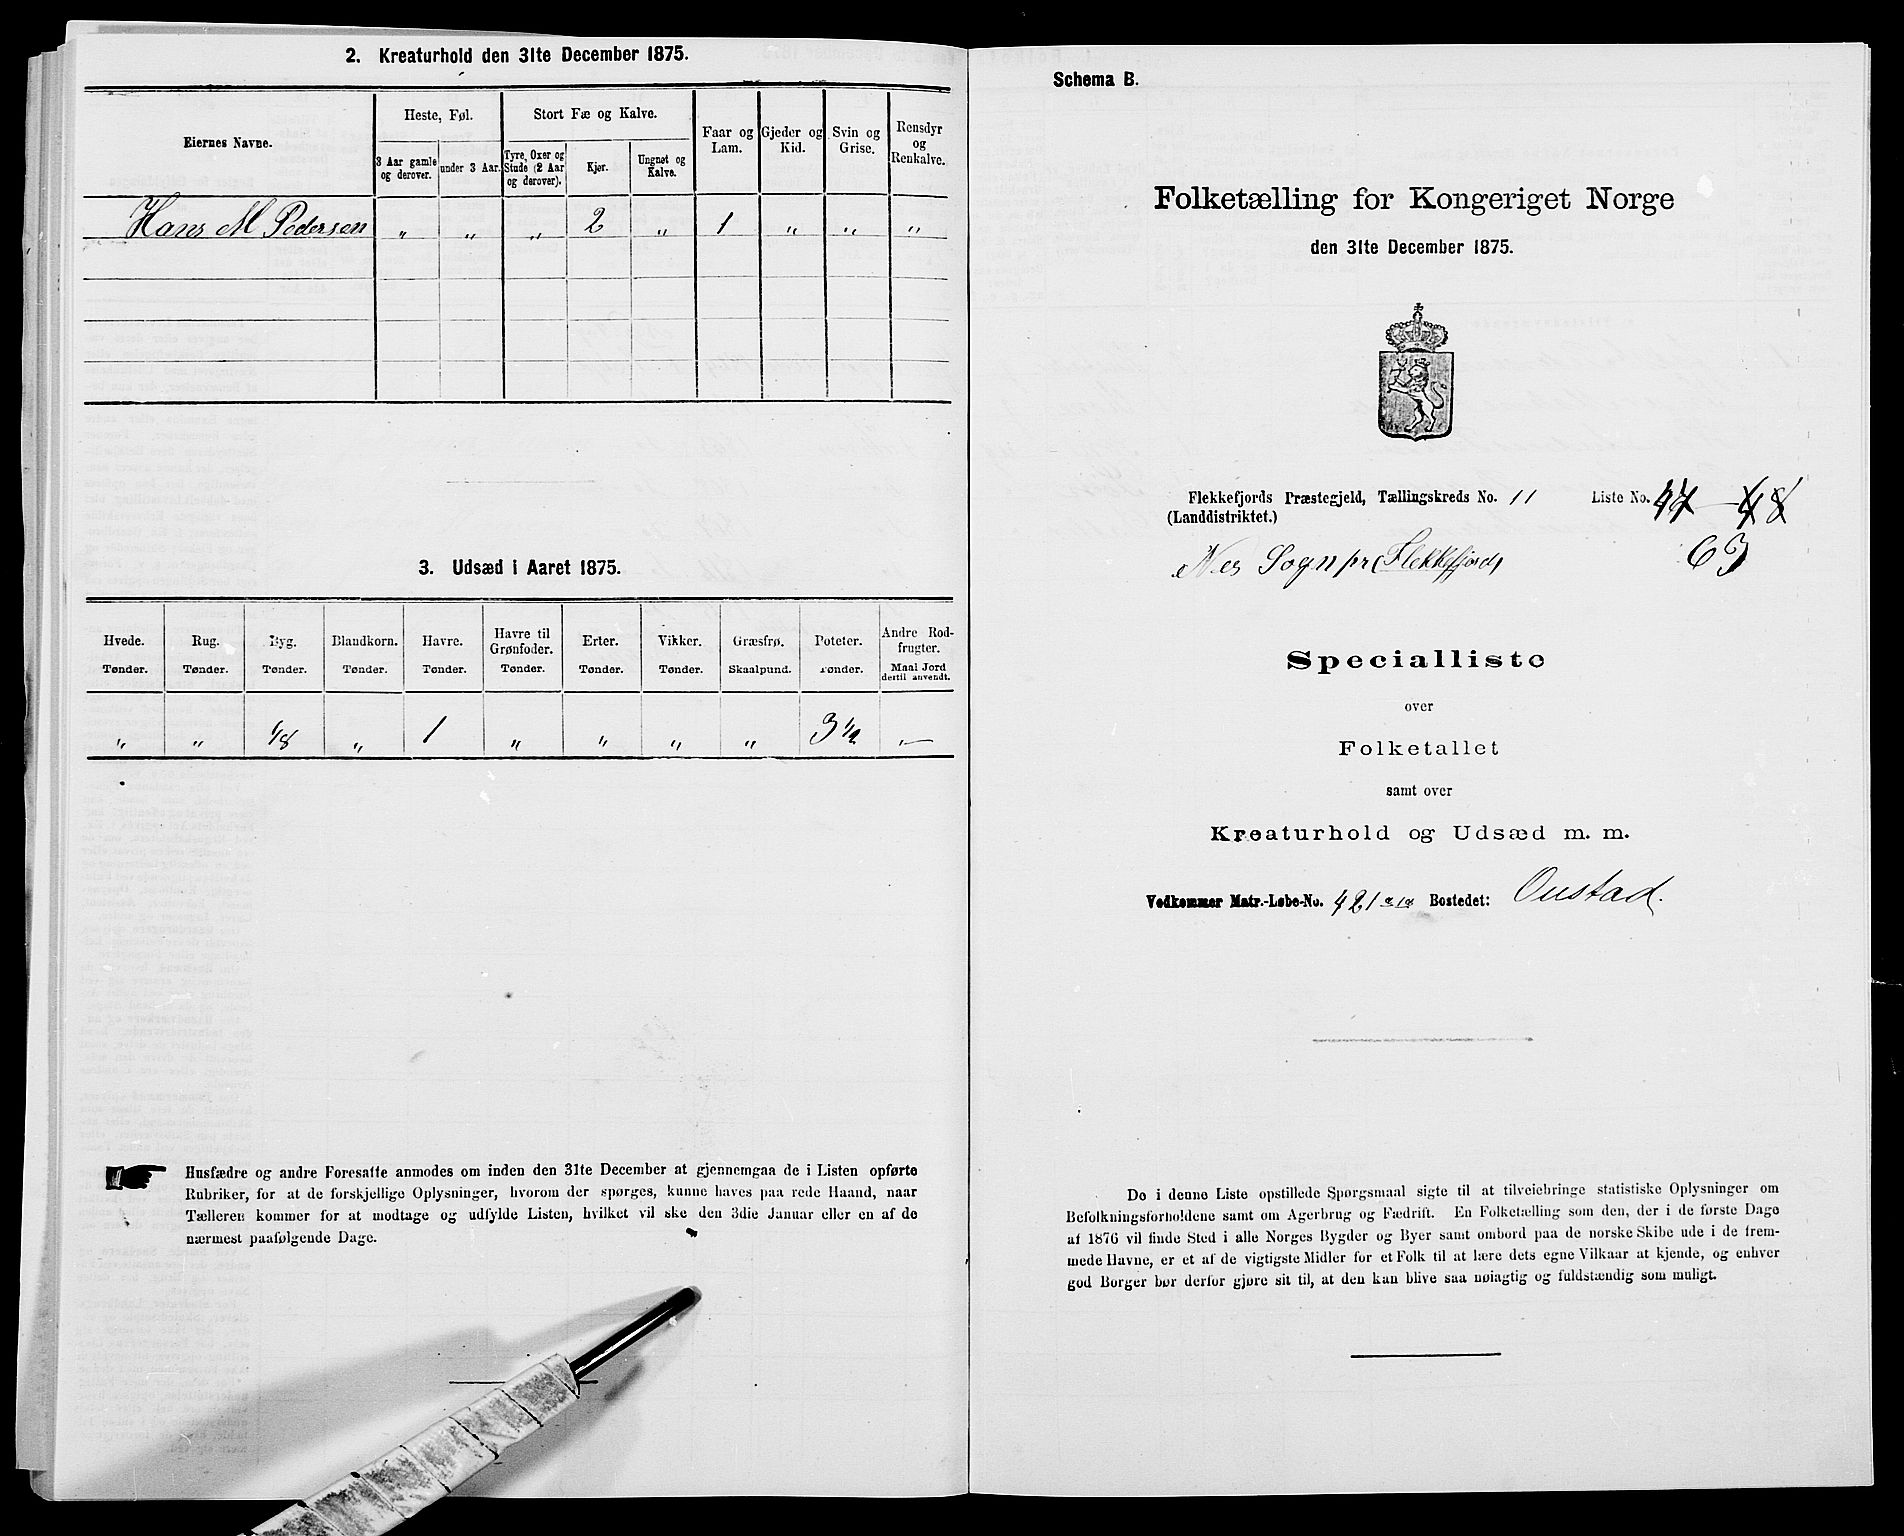 2. Kreaturhold den 31te December 1875.
Eiernes Navne.
Heste, Føl.
3 Aar gamle og derover.
under 3 Aar.
Stort Fæ og Kalve.
Tyre, Oxer og Stude (2 Aar og derover).
Kjør.
Ungnøt og Kalve.
Faar og Lam.
Gjeder og Kid.
Svin og Grise.
Rensdyr og Renkalve.
Hans M Pedersen „ „ „ 2 „ 1 „ „ „
3. Udsæd i Aaret 1875.
Hvede. Rug. Byg. Blandkorn. Havre. Havre til Grønfoder. Erter. Vikker. Græsfrø. Poteter. Andre Rodfrugter.
Tønder. Tønder. Tønder. Tønder. Tønder. Tønder. Tønder. Tønder. Skaalpund. Tønder. Maal Jord dertil anvendt.
„ „ 1/8 „ 1 „ „ „ „ 3 1/2 „
Husfædre og andre Foresatte anmodes om inden den 31te December at gjennemgaa de i Listen opførte
Rubriker, for at de forskjellige Oplysninger, hvorom der spørges, kunne haves paa rede Haand, naar
Tælleren kommer for at modtage og udfylde Listen, hvilket vil ske den 3die Januar eller en af de
nærmest paafølgende Dage.
Schema B.
Folketælling for Kongeriget Norge
den 31te December 1875.
Flekkefjords Præstegjeld, Tællingskreds No. 11 Liste No. 47 48
(Landdistriktet.)
Nes Sogn pr (Flekkefjord) 63
Specialliste
over
Folketallet
samt over
Kreaturhold og Udsæd m. m.
Vedkommer Matr.-Løbe-No. 421 Bostedet: Oustad.
De i denne Liste opstillede Spørgsmaal sigte til at tilveiebringe statistiske Oplysninger om
Befolkningsforholdene samt om Agerbrug og Fædrift. En Folketælling som den, der i de første Dage
af 1876 vil finde Sted i alle Norges Bygder og Byer samt ombord paa de norske Skibe ude i de frem-
mede Havne, er et af de vigtigste Midler for et Folk til at lære dets egne Vilkaar at kjende, og enhver
god Borger bør derfor gjøre sit til, at den kan blive saa nøiagtig og fuldstændig som muligt.